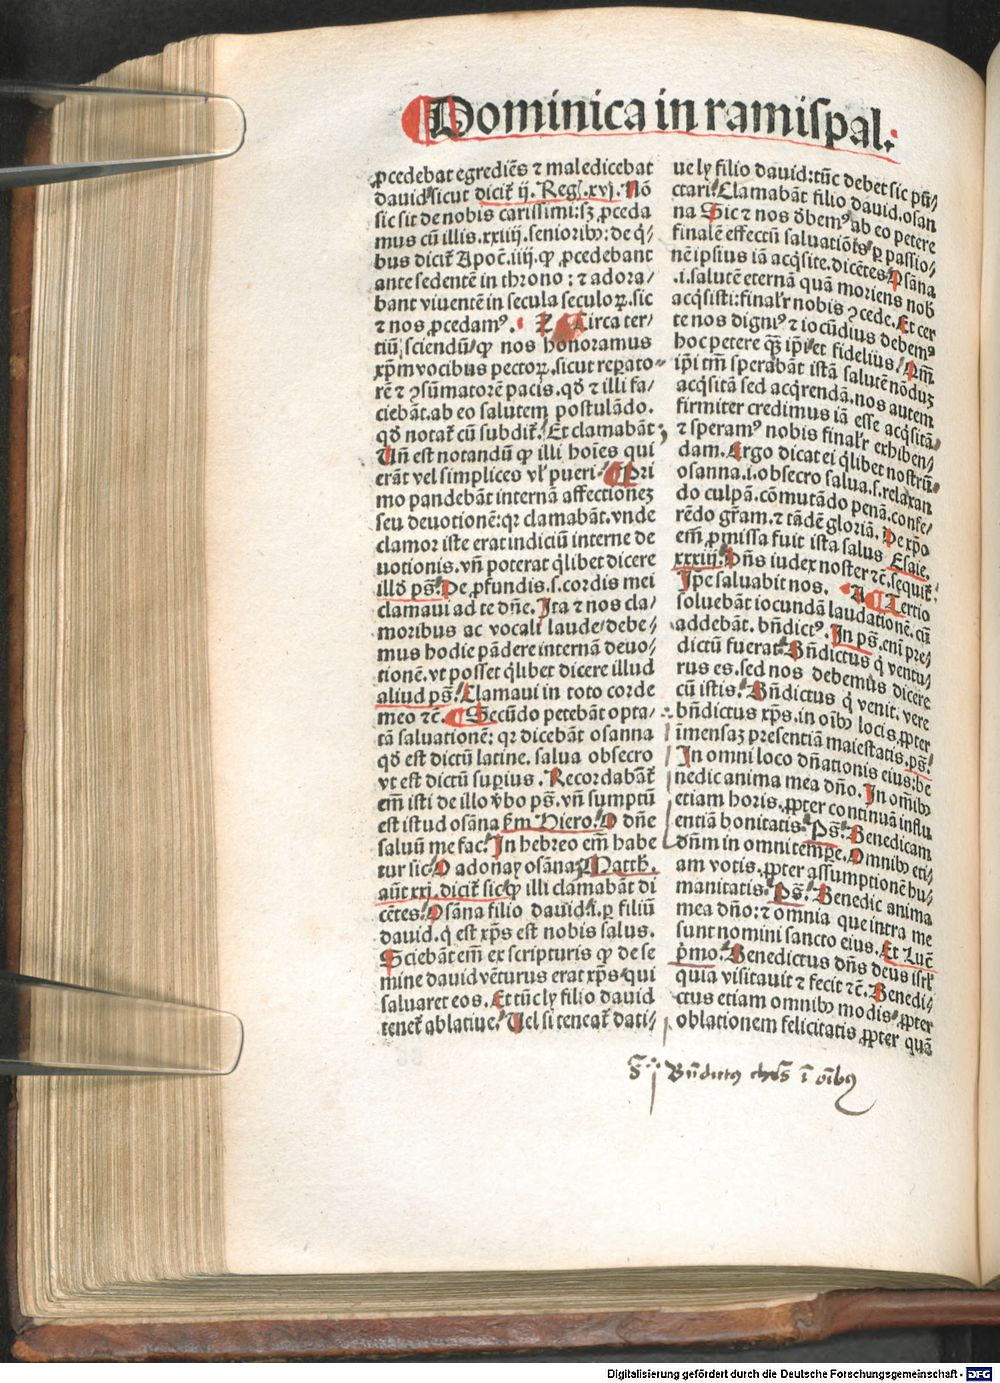 Dominica in ramispal.
ꝓcedebat egrediēs ⁊ maledicebat
dauid sicut dicit̃ ij. Reg. xvj. Nō
sic sit de nobis carissimi: sꝫ ꝓceda
mus cū illis .xxiiij. seniorib9: de q̇/
bus dicit̃ Apoc̄. iiij. ꝙ ꝓcedebant
ante sedentē in throno: ⁊ adora/
bant viuentē in secula seculoꝝ. sic
⁊ nos ꝓcedam9. Circa ter/
tiū sciendū ꝙ nos honoramus
xp̄m vocibus pectoꝝ. sicut reꝑato
rē ⁊ ꝯsūmatorē pacis. qđ ⁊ illi fa/
ciebāt. ab eo salutem postulādo.
qđ notat̃ cū subdit̃. Et clamabāt
Un̄ est notandū ꝙ illi hoīes qui
erāt vel simplices vl̓ pueri. Pri
mo pandebāt internā affectionēꝫ
seu deuotionē: qꝛ clamabāt. vnde
clamor iste erat indiciū interne de
uotionis. vn̄ poterat q̇libet dicere
illđ ps̄. De ꝓfundis .s. cordis mei
clamaui ad te dn̄e. Ita ⁊ nos cla/
moribus ac vocali laude debe/
mus hodie pādere internā deuo/
tionē. vt posset q̇libet dicere illud
aliud ps̄. Clamaui in toto corde
meo ⁊c̄. Secūdo petebāt opta/
tā saluationē: qꝛ dicebāt osanna
qđ est dictū latine. salua obsecro
vt est dictū suꝑius. Recordabāt̃
em̄ isti de illo v̓bo ps̄. vn̄ sumptū
est istud osāna ẜm Hiero. O dn̄e
saluū me fac. In hebreo em̄ habe
tur sic. O adonay osāna. Matth.
aūt xxj. dicit̃ sic ꝙ illi clamabāt di
cētes. Osāna filio dauid .i. ꝑ filiū
dauid. q̇ est xp̄s est nobis salus.
Sciebāt em̄ ex scripturis ꝙ de se
mine dauid vēturus erat xp̄s qui
saluaret eos. Et tūc ly filio dauid
tenet̃ ablatiue. Uel si teneat̃ dati/
ue ly filio dauid: tūc debet sic pū/
ctari. Clamabāt filio dauid. osan
na Sic ⁊ nos đbem9 ab eo petere
finalē effectū saluatiōis ꝑ passio/
nē ipsius iā acq̇site. dicētes Osāna
.i. salutē eternā quā moriens nob̄
acq̇sisti: finalr̓ nobis ꝯcede. Et cer
te nos digni9 ⁊ iocūdius debem9
hoc petere qꝫ ip̄i et fidelius. Qm̄
ip̄i tm̄ sperabāt istā salutē nōduꝫ
acq̇sitā sed acq̇rendā. nos autem
firmiter credimus iā esse acq̇sitā
⁊ speram9 nobis finalr̓ exhiben/
dam. Ergo dicat ei q̇libet nostrū
osanna .i. obsecro salua .s. relaxan
do culpā. cōmutādo penā. confe/
rēdo gr̄am. ⁊ tādē gloriā. De xp̄o
em̄ ꝓmissa fuit ista salus Esaie.
xxxiij. Dn̄s iudex noster ⁊c̄. sequit̃.
Ip̄e saluabit nos. Tertio
soluebāt iocundā laudationē. cū
addebāt. bn̄dict9. In ps̄. eni pre/
dictū fuerat. Bn̄dictus q̇ ventu/
rus es. sed nos debemus dicere
cū istis. Bn̄dictus q̇ venit. vere
bn̄dictus xp̄s. in oīb9 locis. ꝓpter
īmensaꝫ presentiā maiestatis. ps̄.
In omni loco dn̄ationis eius: be
nedic anima mea dn̄o. In om̄ib9
etiam horis. ꝓpter continuā influ
entiā bonitatis. Ps̄. Benedicam
dn̄m in omni tempe. Omnib9 eti
am votis. ꝓpter assumptionē hu/
manitatis. Ps̄. Benedic anima
mea dn̄o: ⁊ omnia que intra me
sunt nomini sancto eius. Et Luc̄
p̓mo. Benedictus dn̄s deus isrl̓
quia visitauit ⁊ fecit ⁊c̄. Benedi/
ctus etiam omnib9 modis ꝓpter
oblationem felicitatis ꝓpter quā
Bn̄dictus ī oībus
Digitalisierung gefördert durch die Deutsche Forschungsgemeinschaft - DFG